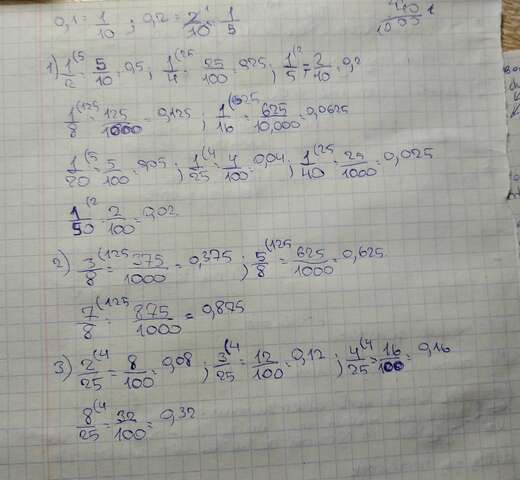 0,1 = 1/10 ; 0,2 = 2/10 = 1/5
1) 1/2 (5 = 5/10 = 0,5 ; 1/4 (25 = 25/100 = 0,25 ; 1/5 (2 = 2/10 = 0,2
1/8 (125 = 125/1000 = 0,125 ; 1/16 (625 = 625/10,000 = 0,0625
1/20 (5 = 5/100 = 0,05 ; 1/25 (4 = 4/100 = 0,04 ; 1/40 (25 = 25/1000 = 0,025
1/50 (2 = 2/100 = 0,02
2) 3/8 (125 = 375/1000 = 0,375 ; 5/8 (125 = 625/1000 = 0,625
7/8 (125 = 875/1000 = 0,875
3) 2/25 (4 = 8/100 = 0,08 ; 3/25 (4 = 12/100 = 0,12 ; 4/25 (4 = 16/100 = 0,16
8/25 (4 = 32/100 = 0,32